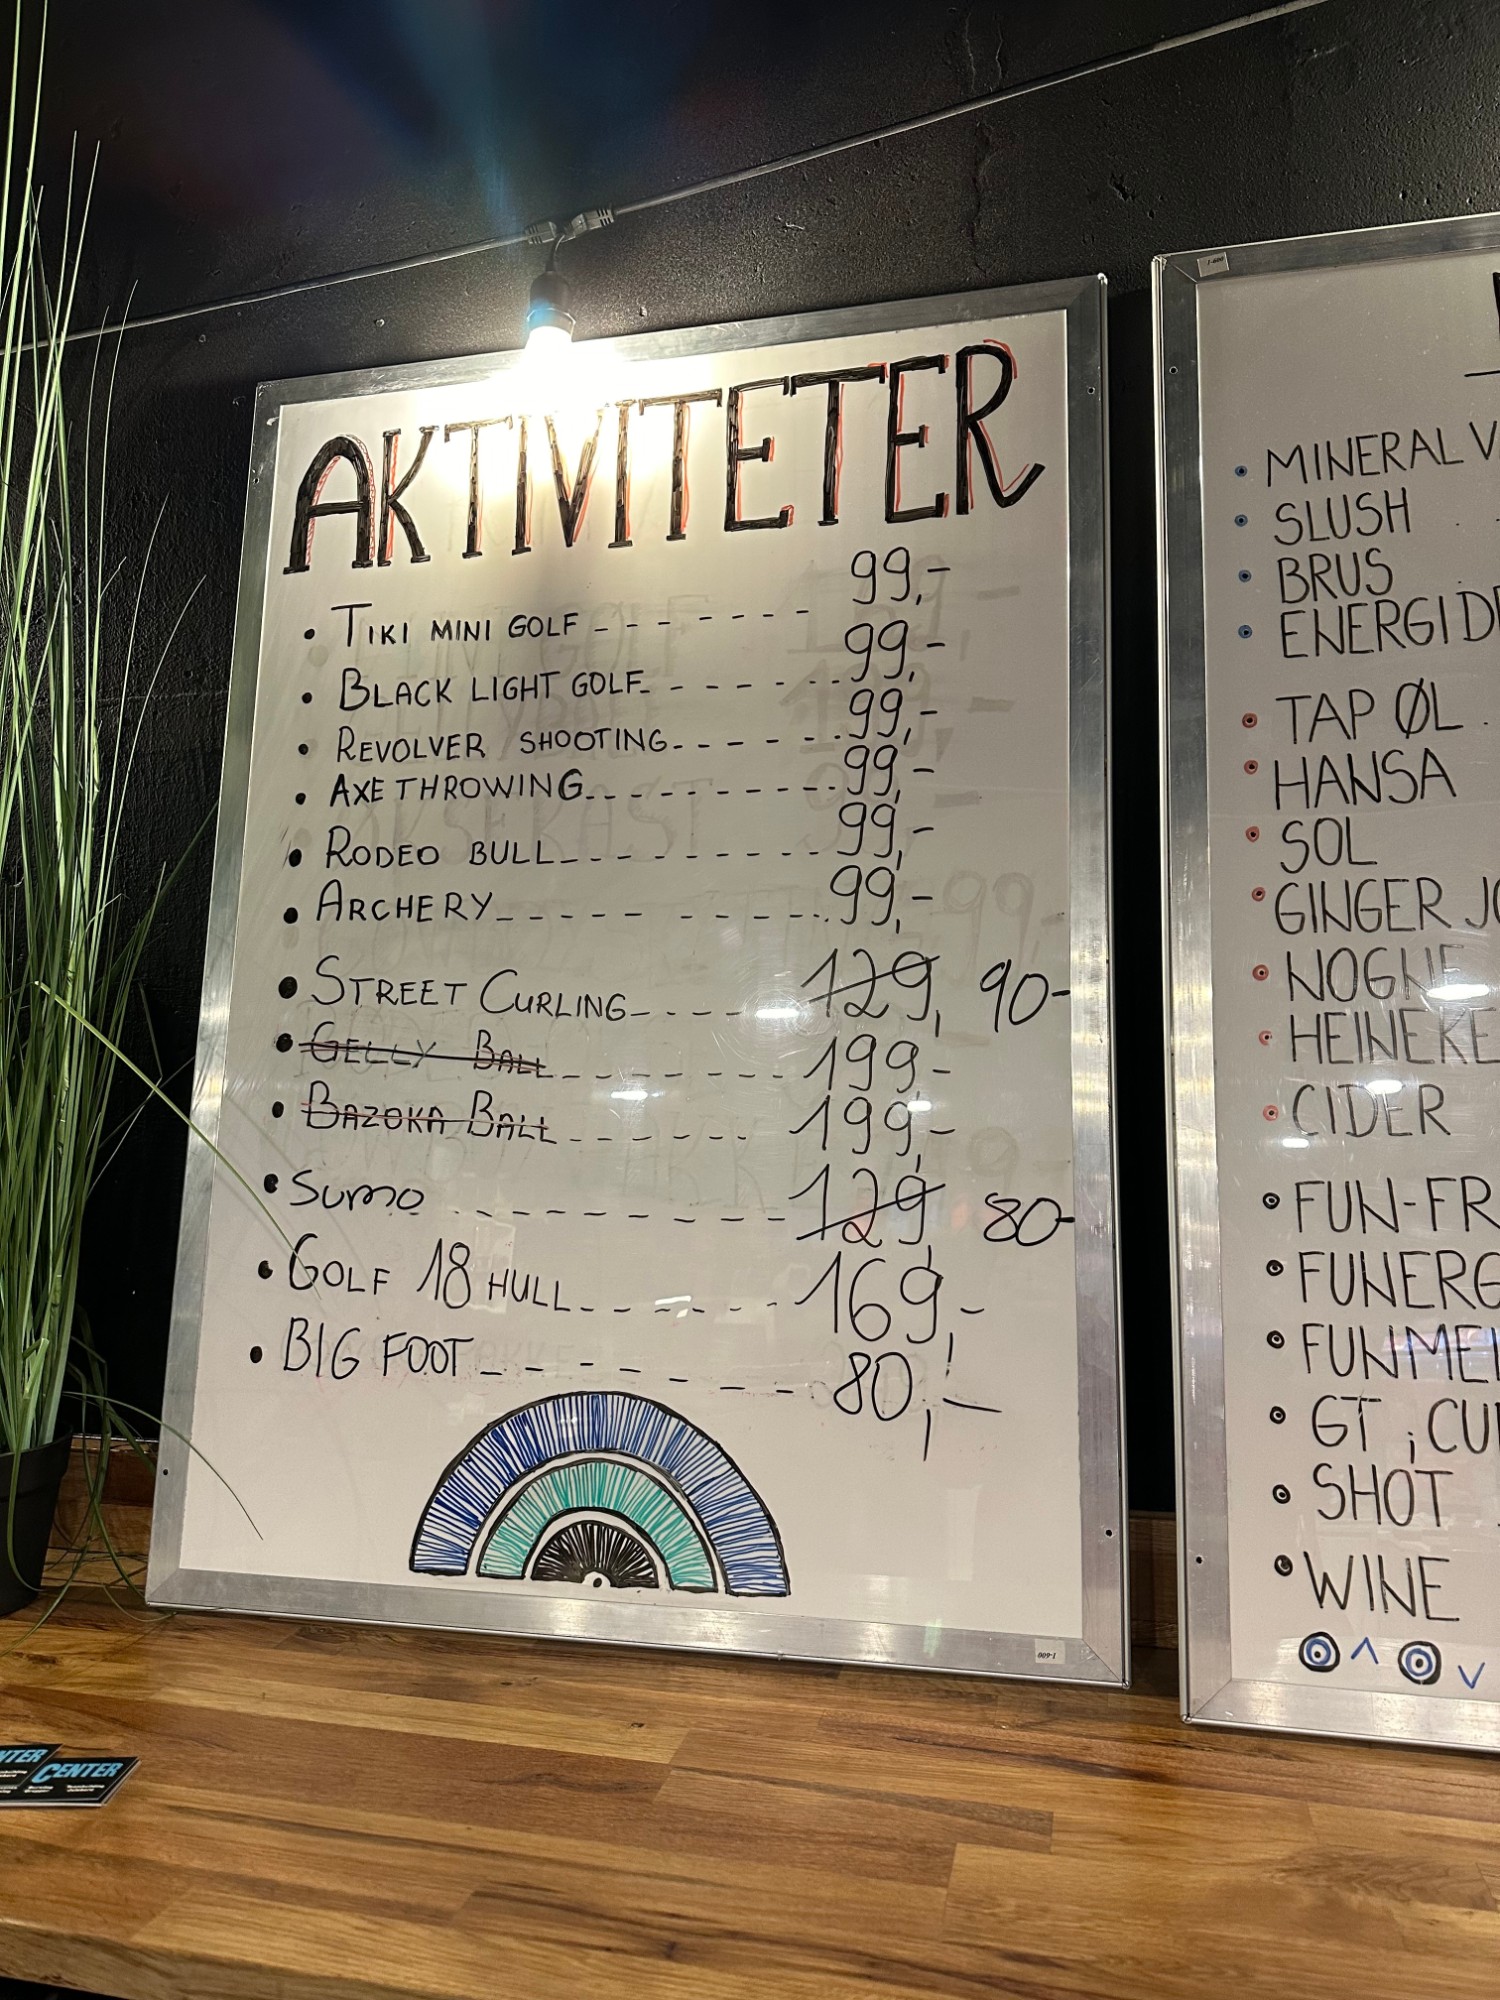 AKTIVITETER
• TIKI MINI GOLF - - - - - - - 99,-
• BLACK LIGHT GOLF - - - - - - 99,-
• REVOLVER SHOOTING - - - - - - 99,-
• AXE THROWING - - - - - - - - - 99,-
• RODEO BULL - - - - - - - - - 99,-
• ARCHERY - - - - - - - - - - 99,-
• STREET CURLING - - - - 129, 90-
• GELLY BALL - - - - - - - - 199-
• BAZOKA BALL - - - - - - 199,-
• SUMO - - - - - - - - - 129, 80-
• GOLF 18 HULL - - - - - - 169,-
• BIG FOOT - - - - - - - 80,-
1-600
• MINERALV
• SLUSH
• BRUS
• ENERGID
• TAP ØL
• HANSA
• SOL
• GINGER JO
• NOGNE
• HEINEKE
• CIDER
• FUN-FR
• FUNERG
• FUNME
• GT ; CU
• SHOT
• WINE
1-600
NTER
CENTER